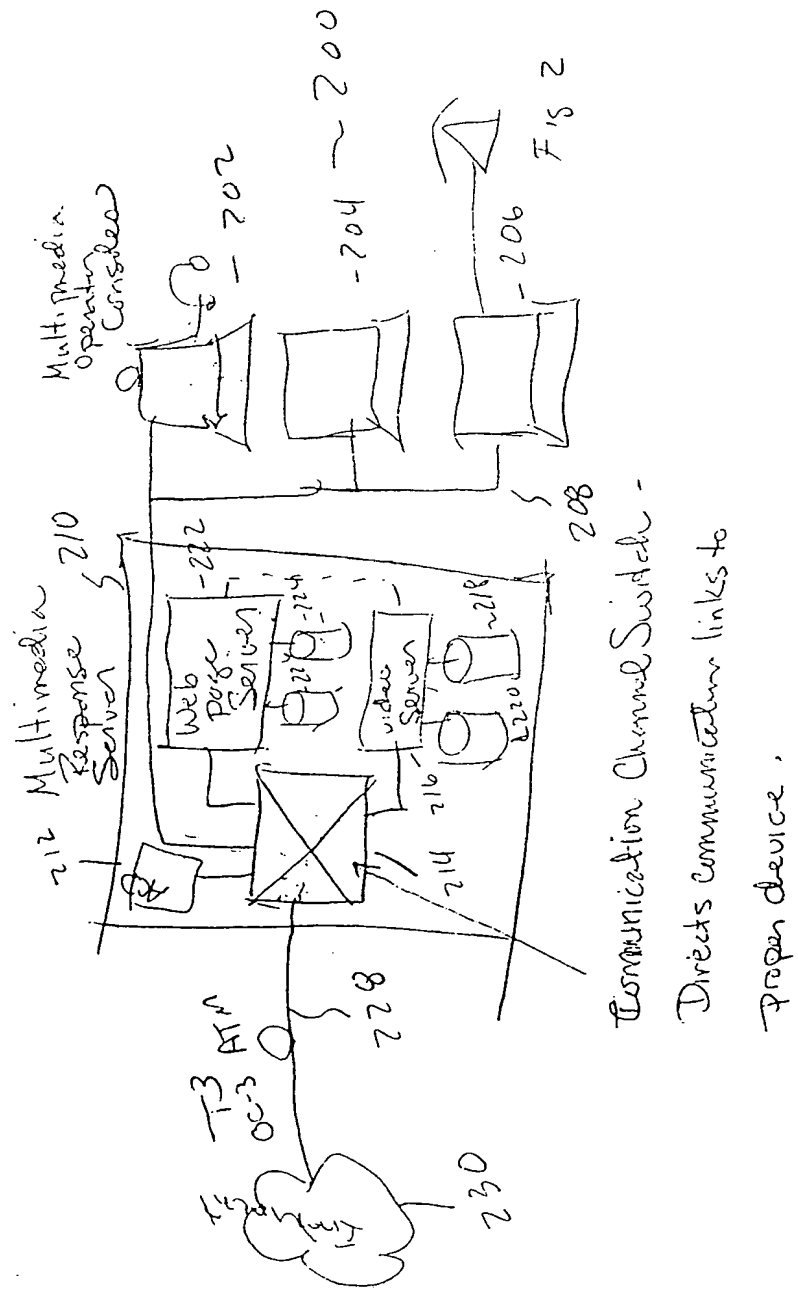 Multimedia
Operator
Consoles
- 202
- 204 ~ 200
- 206
Fig 2
208
Multimedia
Response
Server
210
212
- 222
Web
page
Server
- 224
video
Server
216
~ 218
220
214
T3
OC-3
ATM
228
230
Communication Channel Switch -
Directs communication links to
proper device.